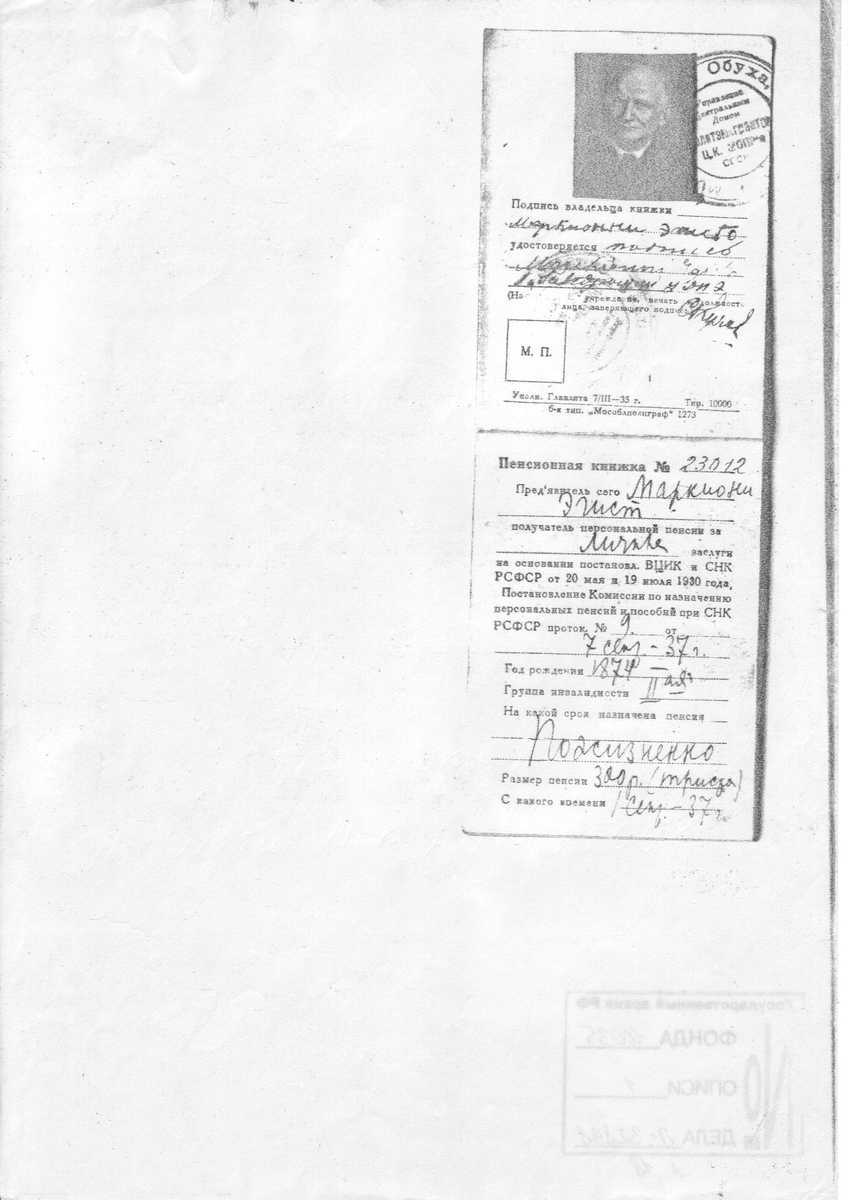 Обуха,
Управление
Центральными
Домами
ПОЛИТЭМИГРАНТОВ
Ц.К. МОПР'а
СССР
Подпись владельца книжки
Маркионни Эжисто
удостоверяется подпись
(На учрежден., печать и должность
лица, заверяющего подпись
М. П.
Уполн. Главлита 7/III—35 г. Тир. 10000
6-я тип. „Мособлполиграф" 1273
Пенсионная книжка № 23012
Пред'явитель сего Маркиони
Эгист
получатель персональной пенсии за
Личные заслуги
на основании постановл. ВЦИК и СНК
РСФСР от 20 мая и 19 июля 1930 года,
Постановление Комиссии по назначению
персональных пенсий и пособий при СНК
РСФСР проток. № 9. от
7 сент.- 37 г.
Год рождения 1874
Группа инвалидности II ая
На какой срок назначена пенсия
Пожизненно
Размер пенсии 300 р. (триста)
С какого времени 1 сент.- 37 г.
Государственный архив РФ
ФОНДА
ОПИСИ 1
ДЕЛА
№